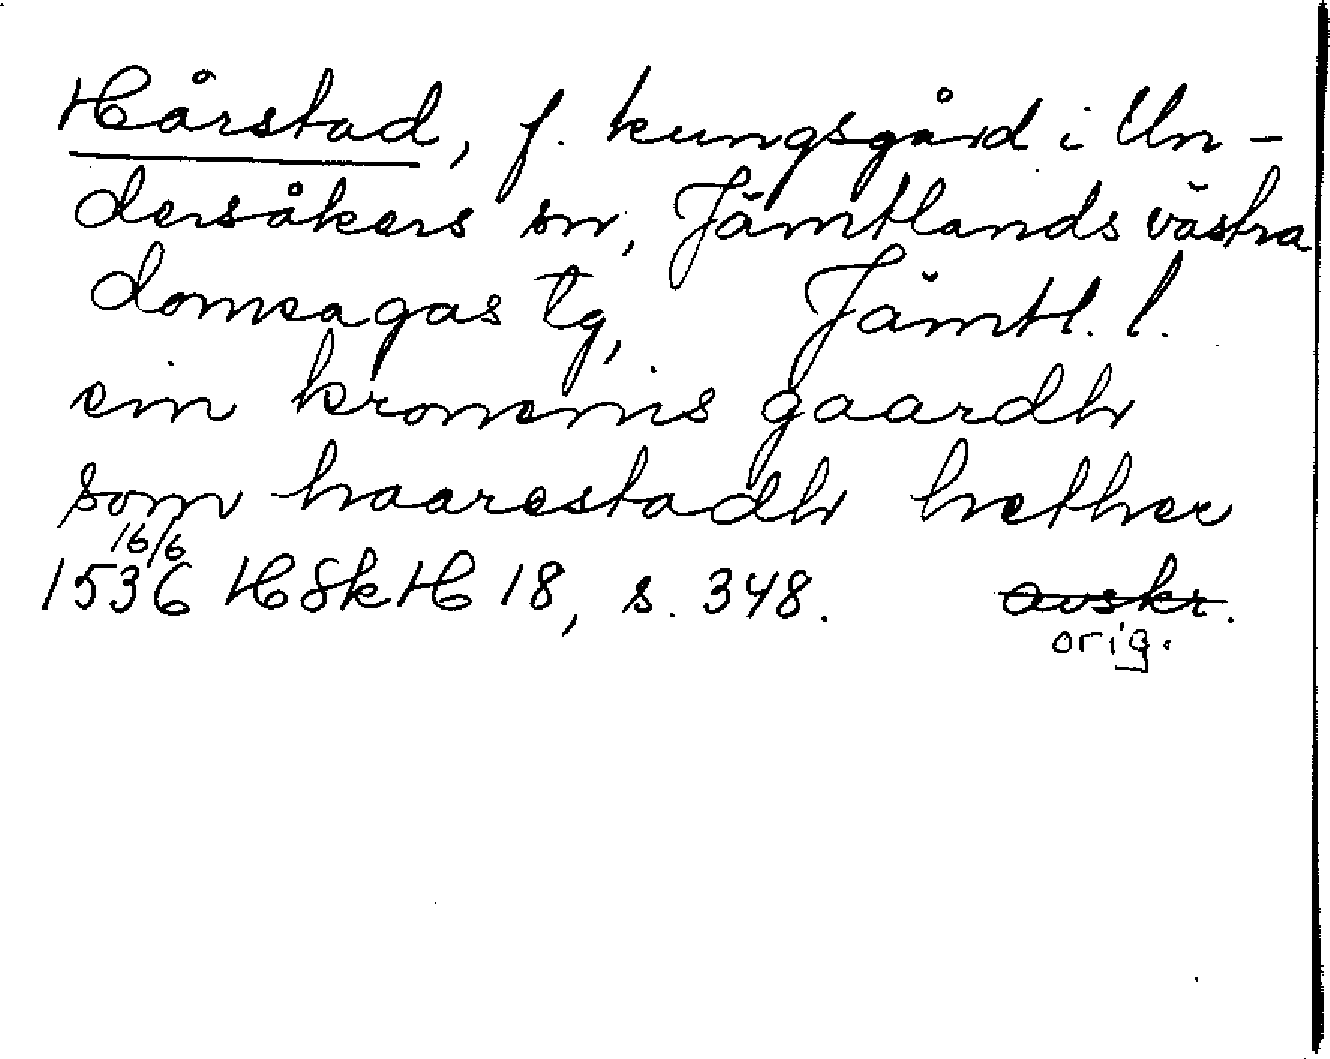 Hårstad, f. kungsgård i Un-
dersåkers sn, Jämtlands västra
domsagas tg, Jämtl. l.
ein kronenis gaardh
som haarestadh hether
16/6
1536 HSkH 18, s. 348. avskr.
orig.